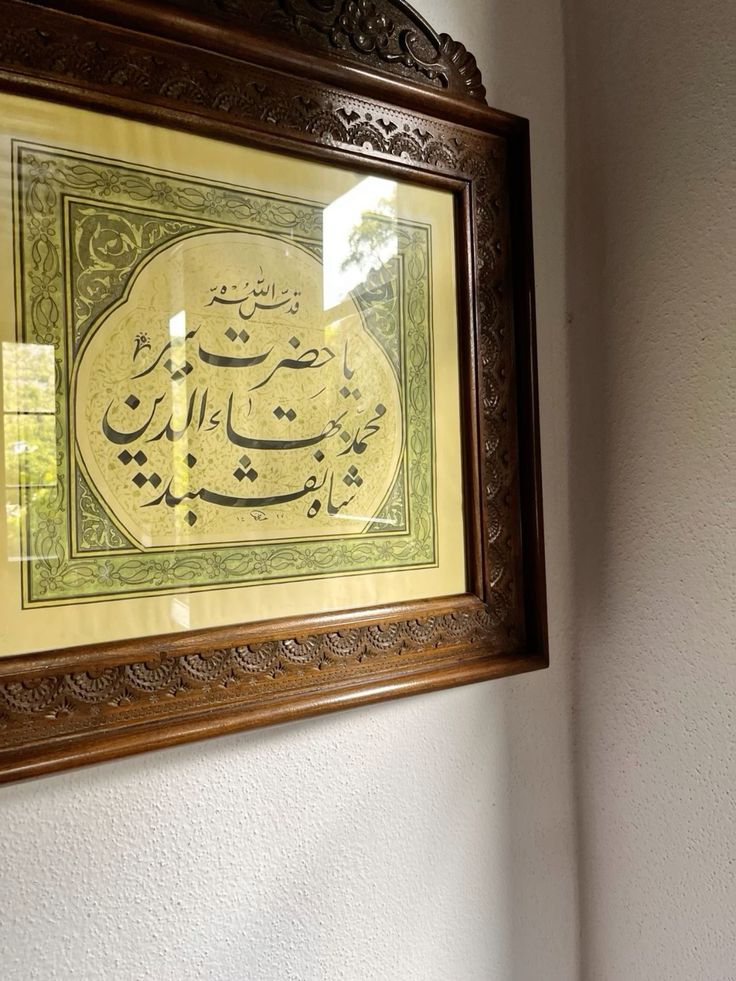 قدّس اللّٰه سرّه
يا حضرت پير
محمد بهاء الدين
شاه نقشبند